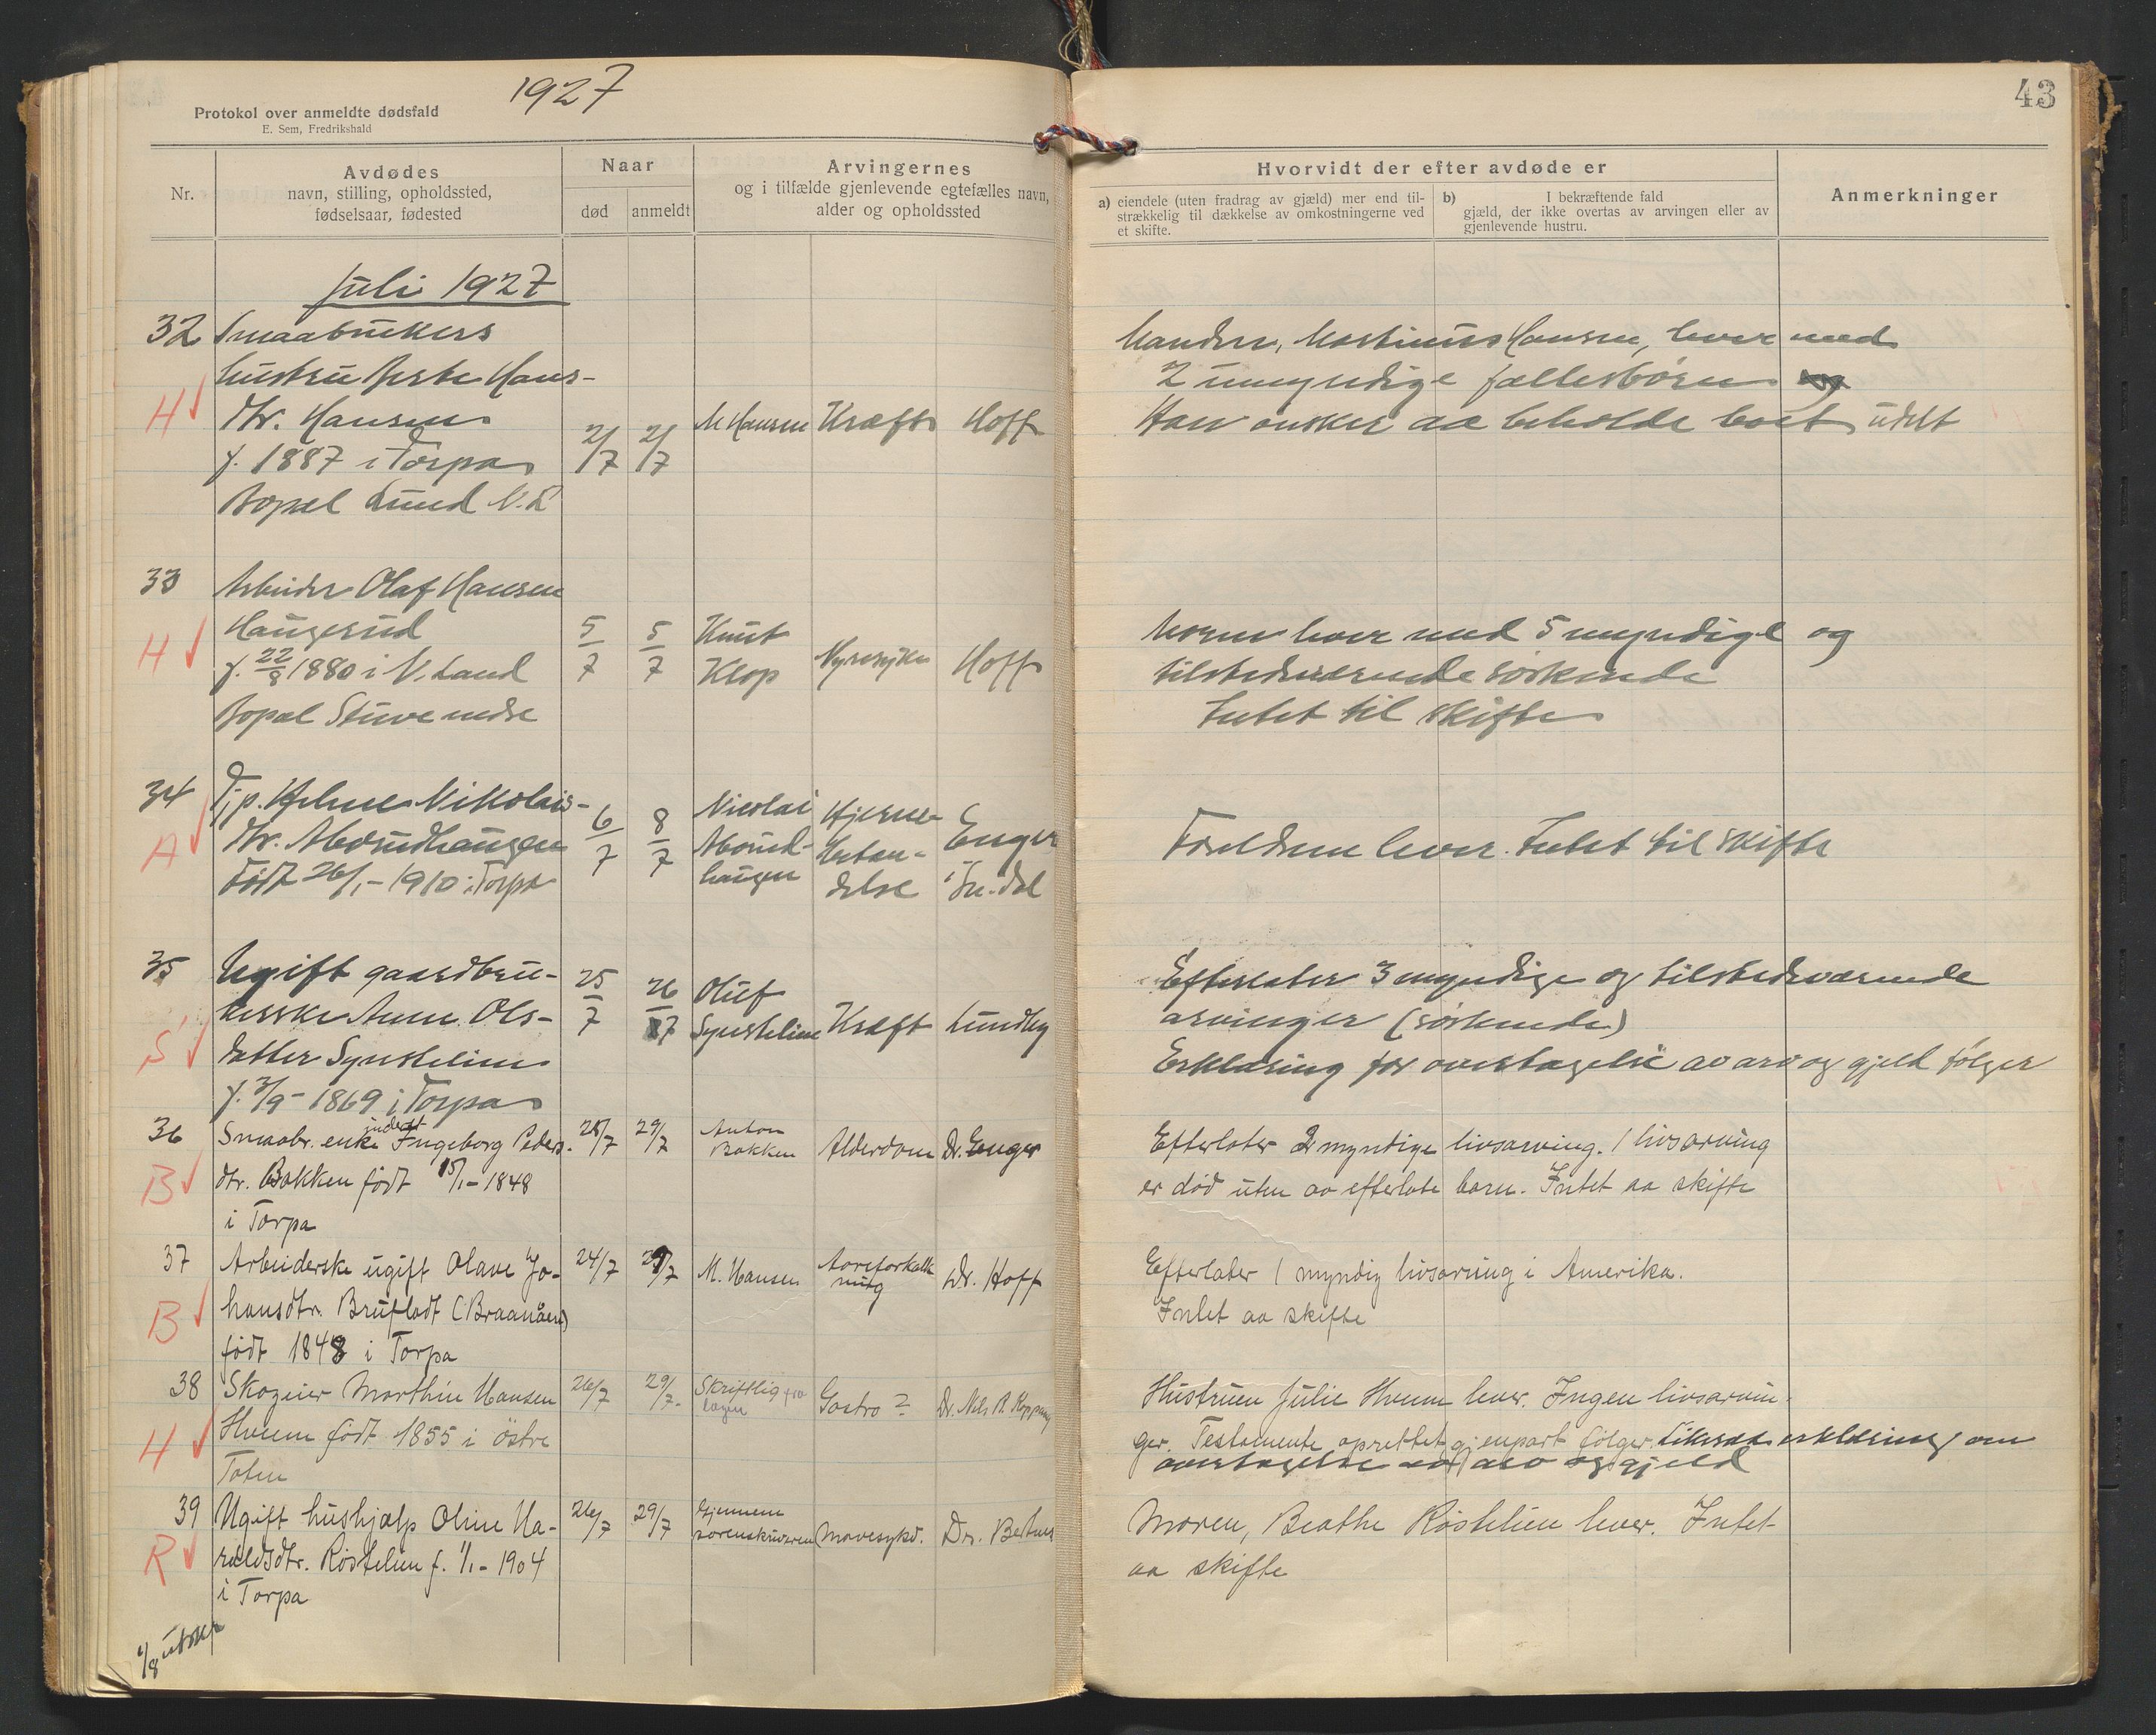 1927
Protokol over anmeldte dødsfald
E. Sem, Fredrikshald
43
Nr.
Avdødes
navn, stilling, opholdssted,
fødselsaar, fødested
Naar
død
anmeldt
Arvingernes
og i tilfælde gjenlevende egtefælles navn,
alder og opholdssted
Hvorvidt der efter avdøde er
a) eiendele (uten fradrag av gjæld) mer end til-
strækkelig til dækkelse av omkostningerne ved
et skifte.
b) I bekræftende fald
gjæld, der ikke overtas av arvingen eller av
gjenlevende hustru.
Anmerkninger
Juli 1927
32 Smaabrukers
hustru Berte Hans-
dtr. Hansen
f. 1887 i Torpa
Bopæl Lund N. L
H
2/7 2/7
M Hansen Kræft Hoff
Manden, Martinius Hansen, lever med
2 umyndige fællesbørn
Han ønsker aa beholde boet udelt
33 Arbeider Olaf Hansen
Haugerud
f. 22/8 1880 i N. Land
Bopæl Stuve nedre
H
5/7 5/7
Knut
Klop
Nyresyke Hoff
Moren lever med 5 myndige og
tilstedeværende søskende
Intet til skifte
34 Tjp. Helene Nikolais-
dtr. Morudhaugen
Født 26/1 - 1910 i Torpa
A
6/7 8/7
Nicolai
Morud-
haugen
Hjerne-
betæn-
delse
Enger
i Sn.dal
Forældrene lever. Intet til skifte
35 Ugift gaardbru-
kerske Anne Ols-
datter Synstelien
f. 3/9 - 1869 i Torpa
S
25/7 26/7
Oluf
Synstelien Kræft Lundby
Efterlater 3 myndige og tilstedeværende
arvinger (søskende)
Erklæring for overtagelse av arv og gjeld følger
36 Smaabr. enke inderst Ingeborg Peders.
dtr. Bakken født 15/1 - 1848
i Torpa
B
28/7 29/7
Anton
Bakken
Alderdom Dr. Enger
Efterlater 2 myndige livsarving. 1 livsarving
er død uten aa efterlate barn. Intet aa skifte
37 Arbeiderske ugift Olave Jo-
hansdtr. Bruflodt (Braanåen)
født 1848 i Torpa
B
24/7 29/7
M. Hansen
Aareforkalk
ning
Dr. Hoff
Efterlater 1 myndig livsarving i Amerika.
Intet aa skifte
38 Skogeier Marthin Hansen
Hveem født 1855 i østre
Toten
H
26/7 29/7.
Skriftlig fra
Gastro? Dr. Nils R. Koppang
Hustruen Julie Hveem lever. Ingen livsarvin-
ger. Testamente oprettet gjenpart følger. Likesaa erklæring om
overtagelse av arv og gjeld
39 Ugift hushjælp Oline Ha-
raldsdtr. Røstelien f. 1/1 - 1904
i Torpa
R
26/7 29/7
Gjennem
sorenskriveren Mavesykd. Dr.
Moren, Beathe Røstelien lever. Intet
aa skifte
1/8 utskr